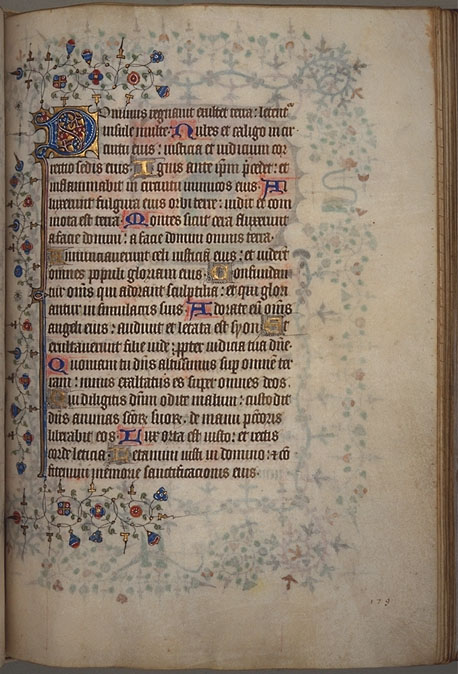 Dominus regnauit exultet terra: letent'
insule multe. Nubes et caligo in cir
cuitu eius: iusticia et iudicium cor
rectio sedis eius. Ignis ante ipm pcedet: et
inflammabit in circuitu inimicos eius. Al
luxerunt fulgura eius orbi terre: uidit et com
mota est terra. Montes sicut cera fluxerunt
a facie domini: a facie domini omnis terra.
Annunciauerunt celi iusticiā eius: et uiderūt
omnes populi gloriam eius. Confundan
tur omēs qui adorant sculptilia: et qui glori
antur in simulacris suis. Adorate eū omēs
angeli eius: audiuit et letata est syon. Et
exultauerunt filie iude: ppter iudicia tua dñe.
Quoniam tu dñs altissimus sup omnē ter
ram: nimis exaltatus es super omnes deos.
Qui diligitis dñm odite malum: custodit
dñs animas scōrū suorū, de manu pctōris
liberabit eos. Lux orta est iusto: et rectis
corde leticia. Letamini iusti in domino: et cō
fitemini memorie sanctificacionis eius.
179